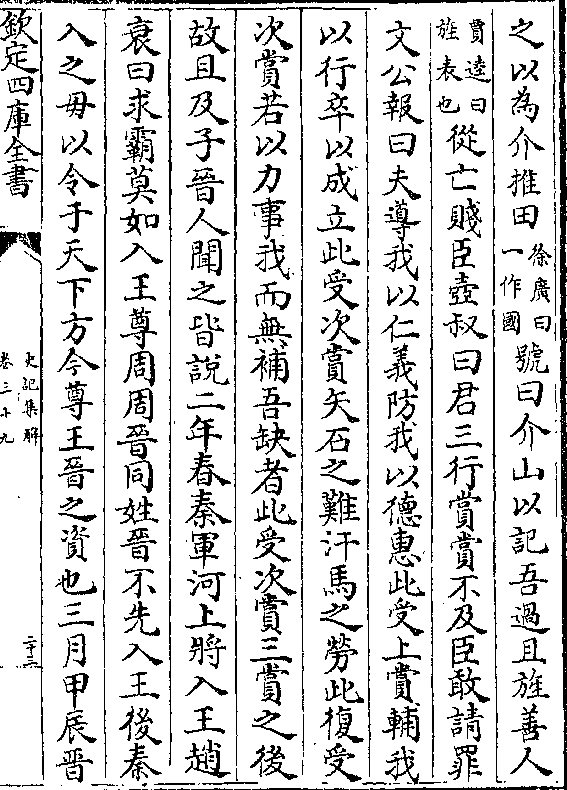 之以為介推田徐廣曰一作國號曰介山以記吾過且旌善人
賈逵曰旌表也從亡賤臣壺叔曰君三行賞賞不及臣敢請罪
文公報曰夫導我以仁義防我以德惠此受上賞輔我
以行卒以成立此受次賞矢石之難汗馬之勞此復受
次賞若以力事我而無補吾缺者此受次賞三賞之後
故且及子晉人聞之皆說二年春秦軍河上將入王趙
衰曰求霸莫如入王尊周周晉同姓晉不先入王後秦
入之毋以令于天下方今尊王晉之資也三月甲辰晉
欽定四庫全書
史記集解
卷三十九
二十三